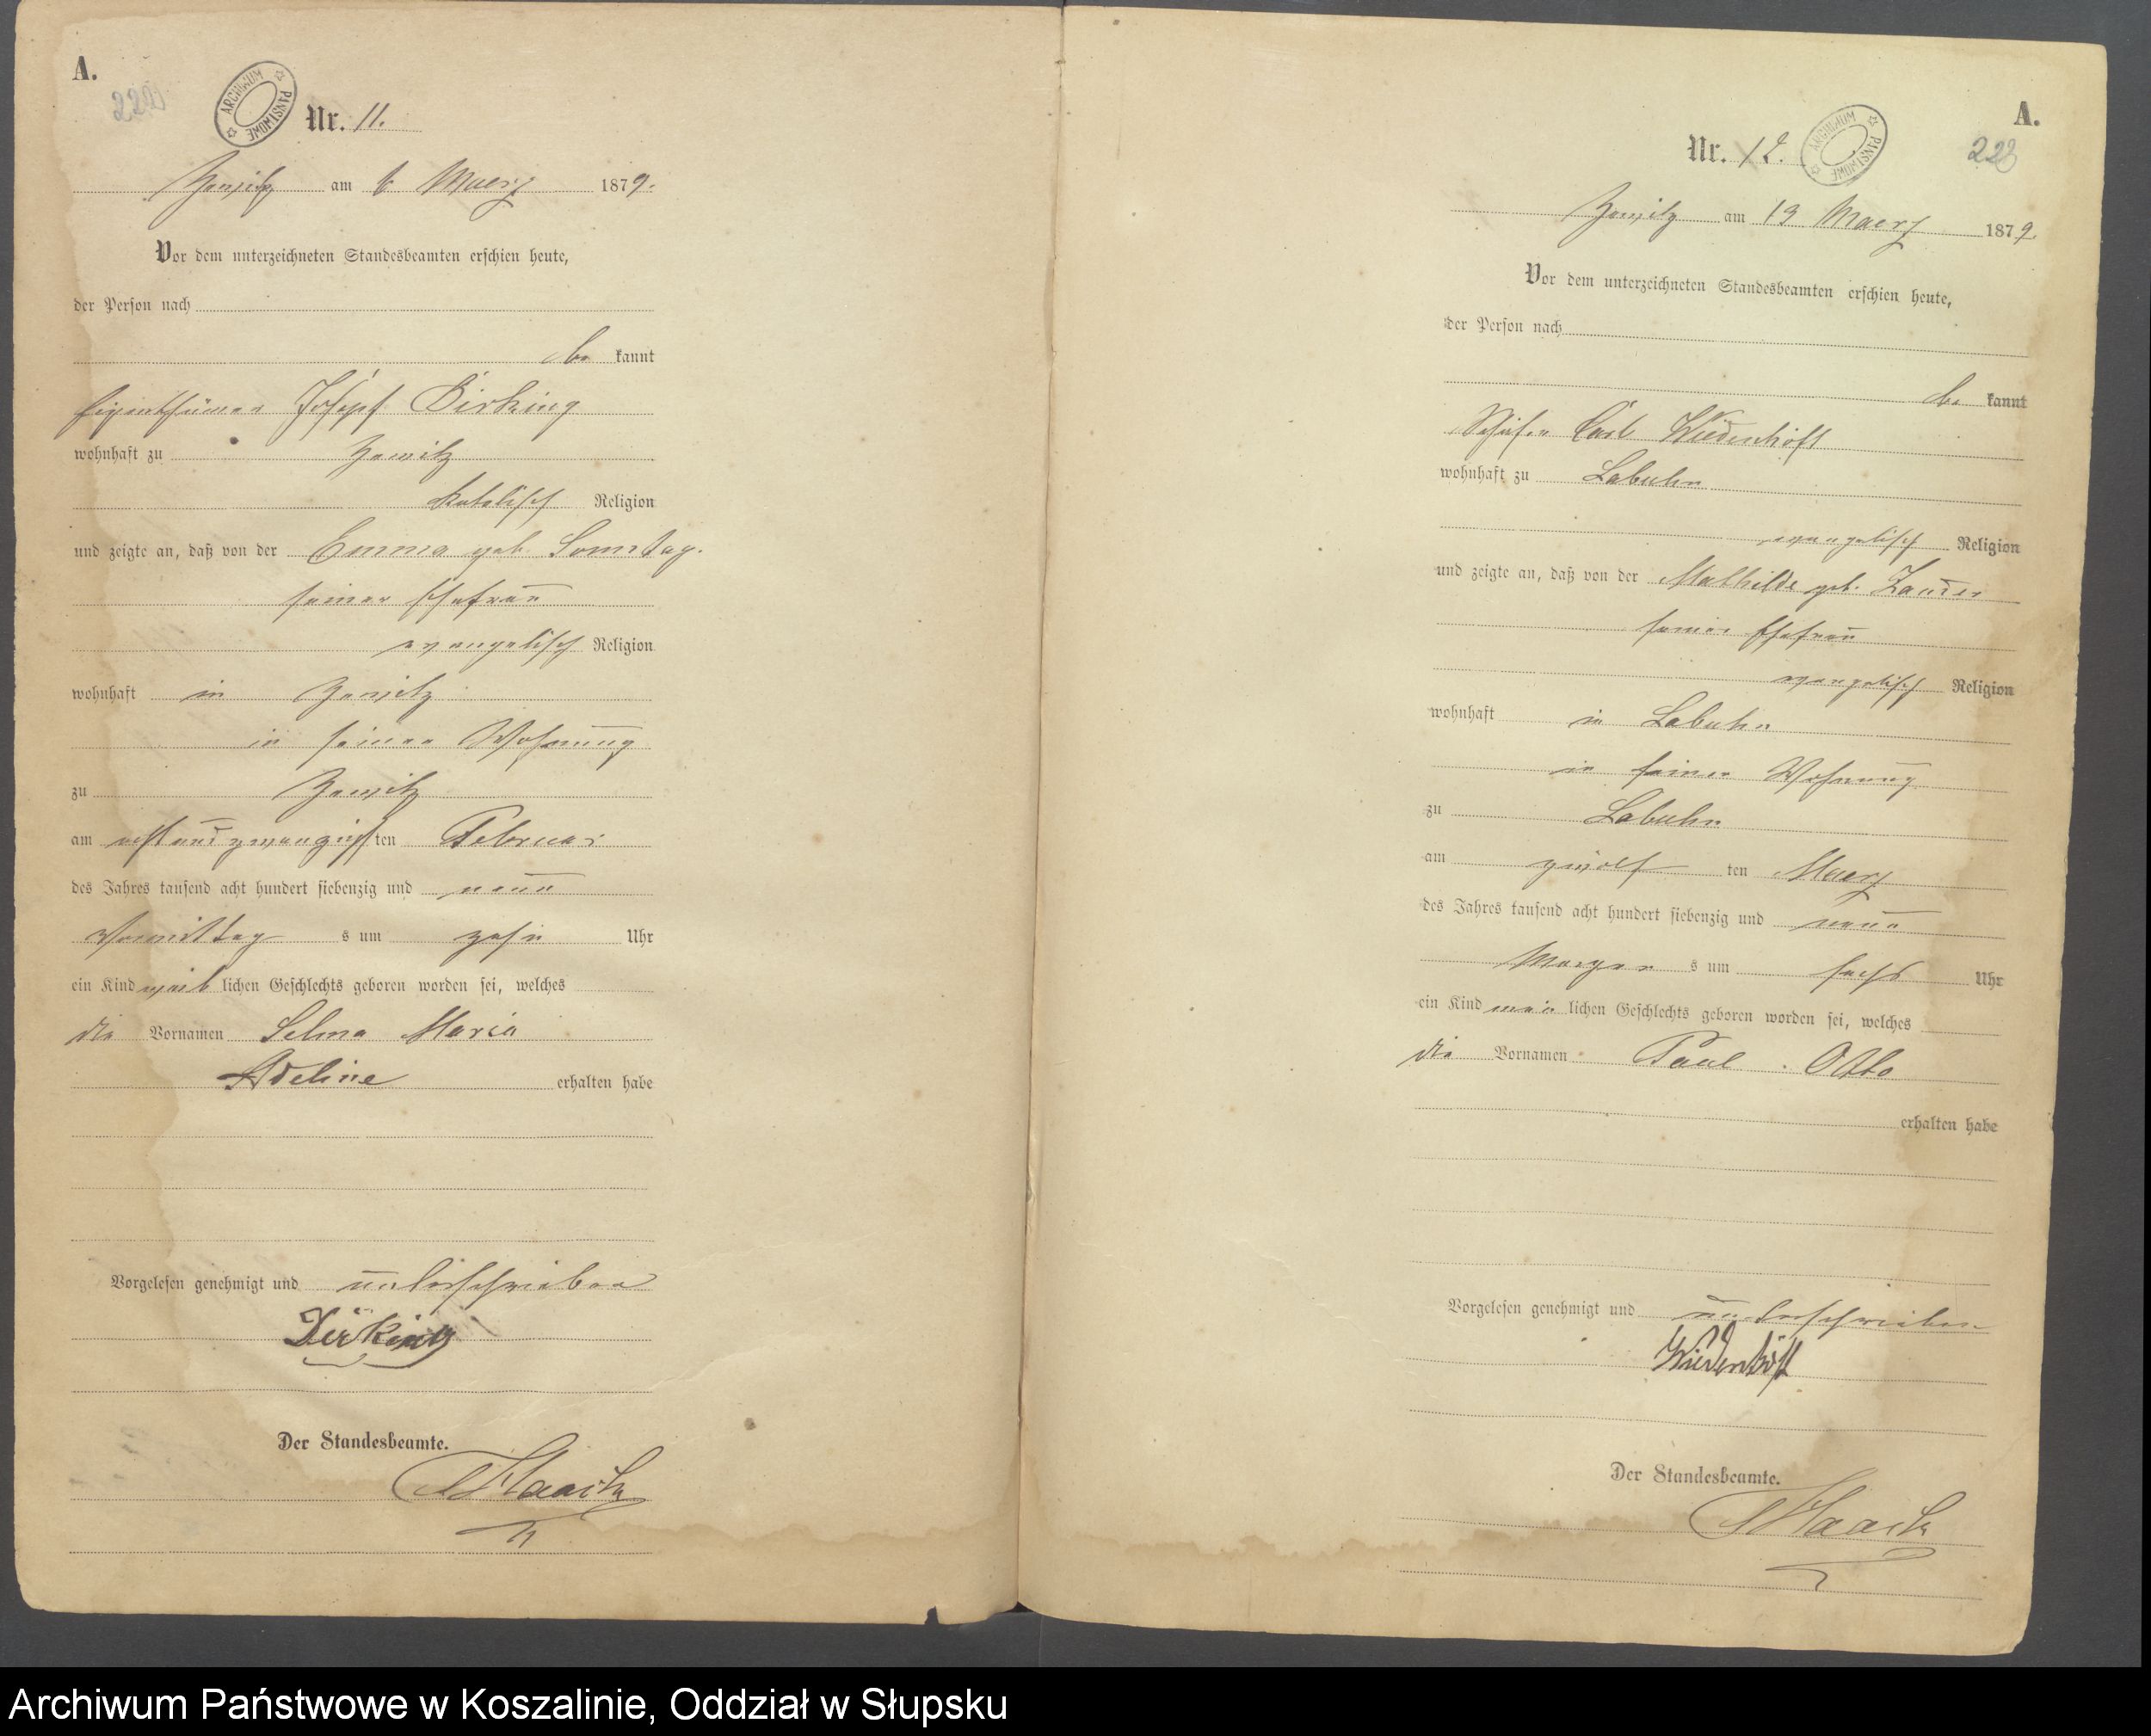 A.
ARCHIWUM PAŃSTWOWE
Nr. 11.
Zewitz am 6 Maerz 1879.
Vor dem unterzeichneten Standesbeamten erschien heute,
der Person nach
be kannt
Eigenthümer Joseph Dirking
wohnhaft zu Zewitz
katolisch Religion
und zeigte an, daß von der Emma geb. Sonntag.
seiner Ehefrau
evangelisch Religion
wohnhaft in Zewitz
in seiner Wohnung
zu Zewitz
am achtundzwanzigsten Februar
des Jahres tausend acht hundert siebenzig und neun
Vormittag s um zehn Uhr
ein Kind weib lichen Geschlechts geboren worden sei, welches
die Vornamen Selma Maria
Adeline erhalten habe
Vorgelesen genehmigt und unterschrieben
Dirking
Der Standesbeamte.
Haack
A.
Nr. 12.
ARCHIWUM PAŃSTWOWE
Zewitz am 13 Maerz 1879
Vor dem unterzeichneten Standesbeamten erschien heute,
der Person nach
be kannt
Schäfer Carl Wiedenhöft
wohnhaft zu Labuhn
evangelisch Religion
und zeigte an, daß von der Mathilde geb.
seiner Ehefrau
evangelisch Religion
wohnhaft in Labuhn
in seiner Wohnung
zu Labuhn
am zwölf ten Maerz
des Jahres tausend acht hundert siebenzig und neun
Morgen s um sechs Uhr
ein Kind män lichen Geschlechts geboren worden sei, welches
die Vornamen Paul Otto
erhalten habe
Vorgelesen genehmigt und unterschrieben
Wiedenhöft
Der Standesbeamte.
Haack
Archiwum Państwowe w Koszalinie, Oddział w Słupsku